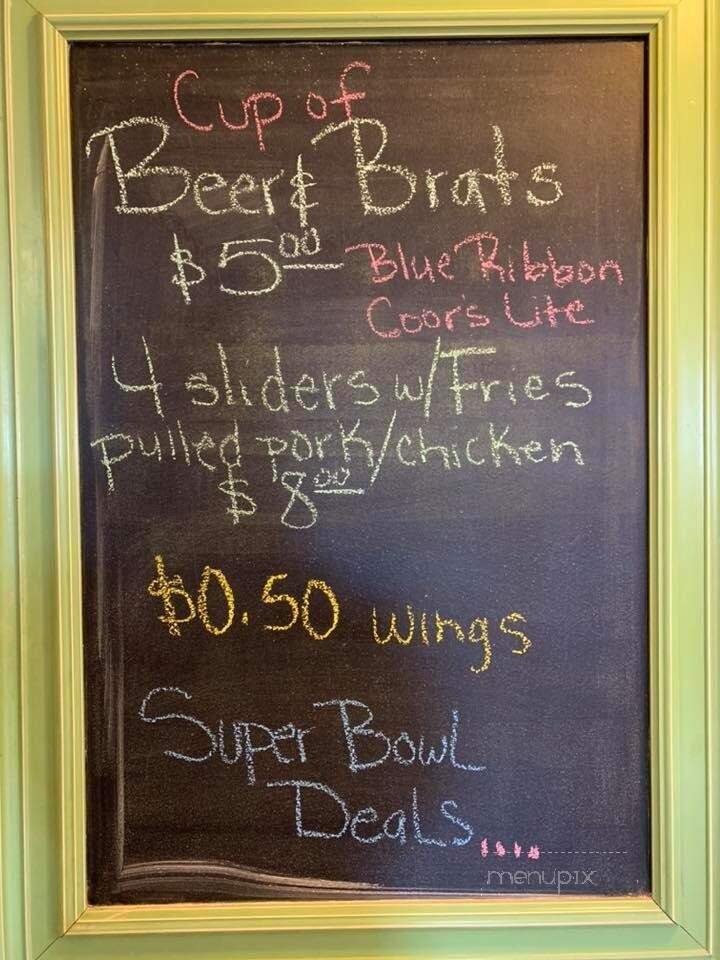 Cup of
Beer & Brats
$5.00 Blue Ribbon
Coor's Lite
4 sliders w/Fries
pulled pork/chicken
$8.00
$0.50 wings
Super Bowl
Deals....
menupix